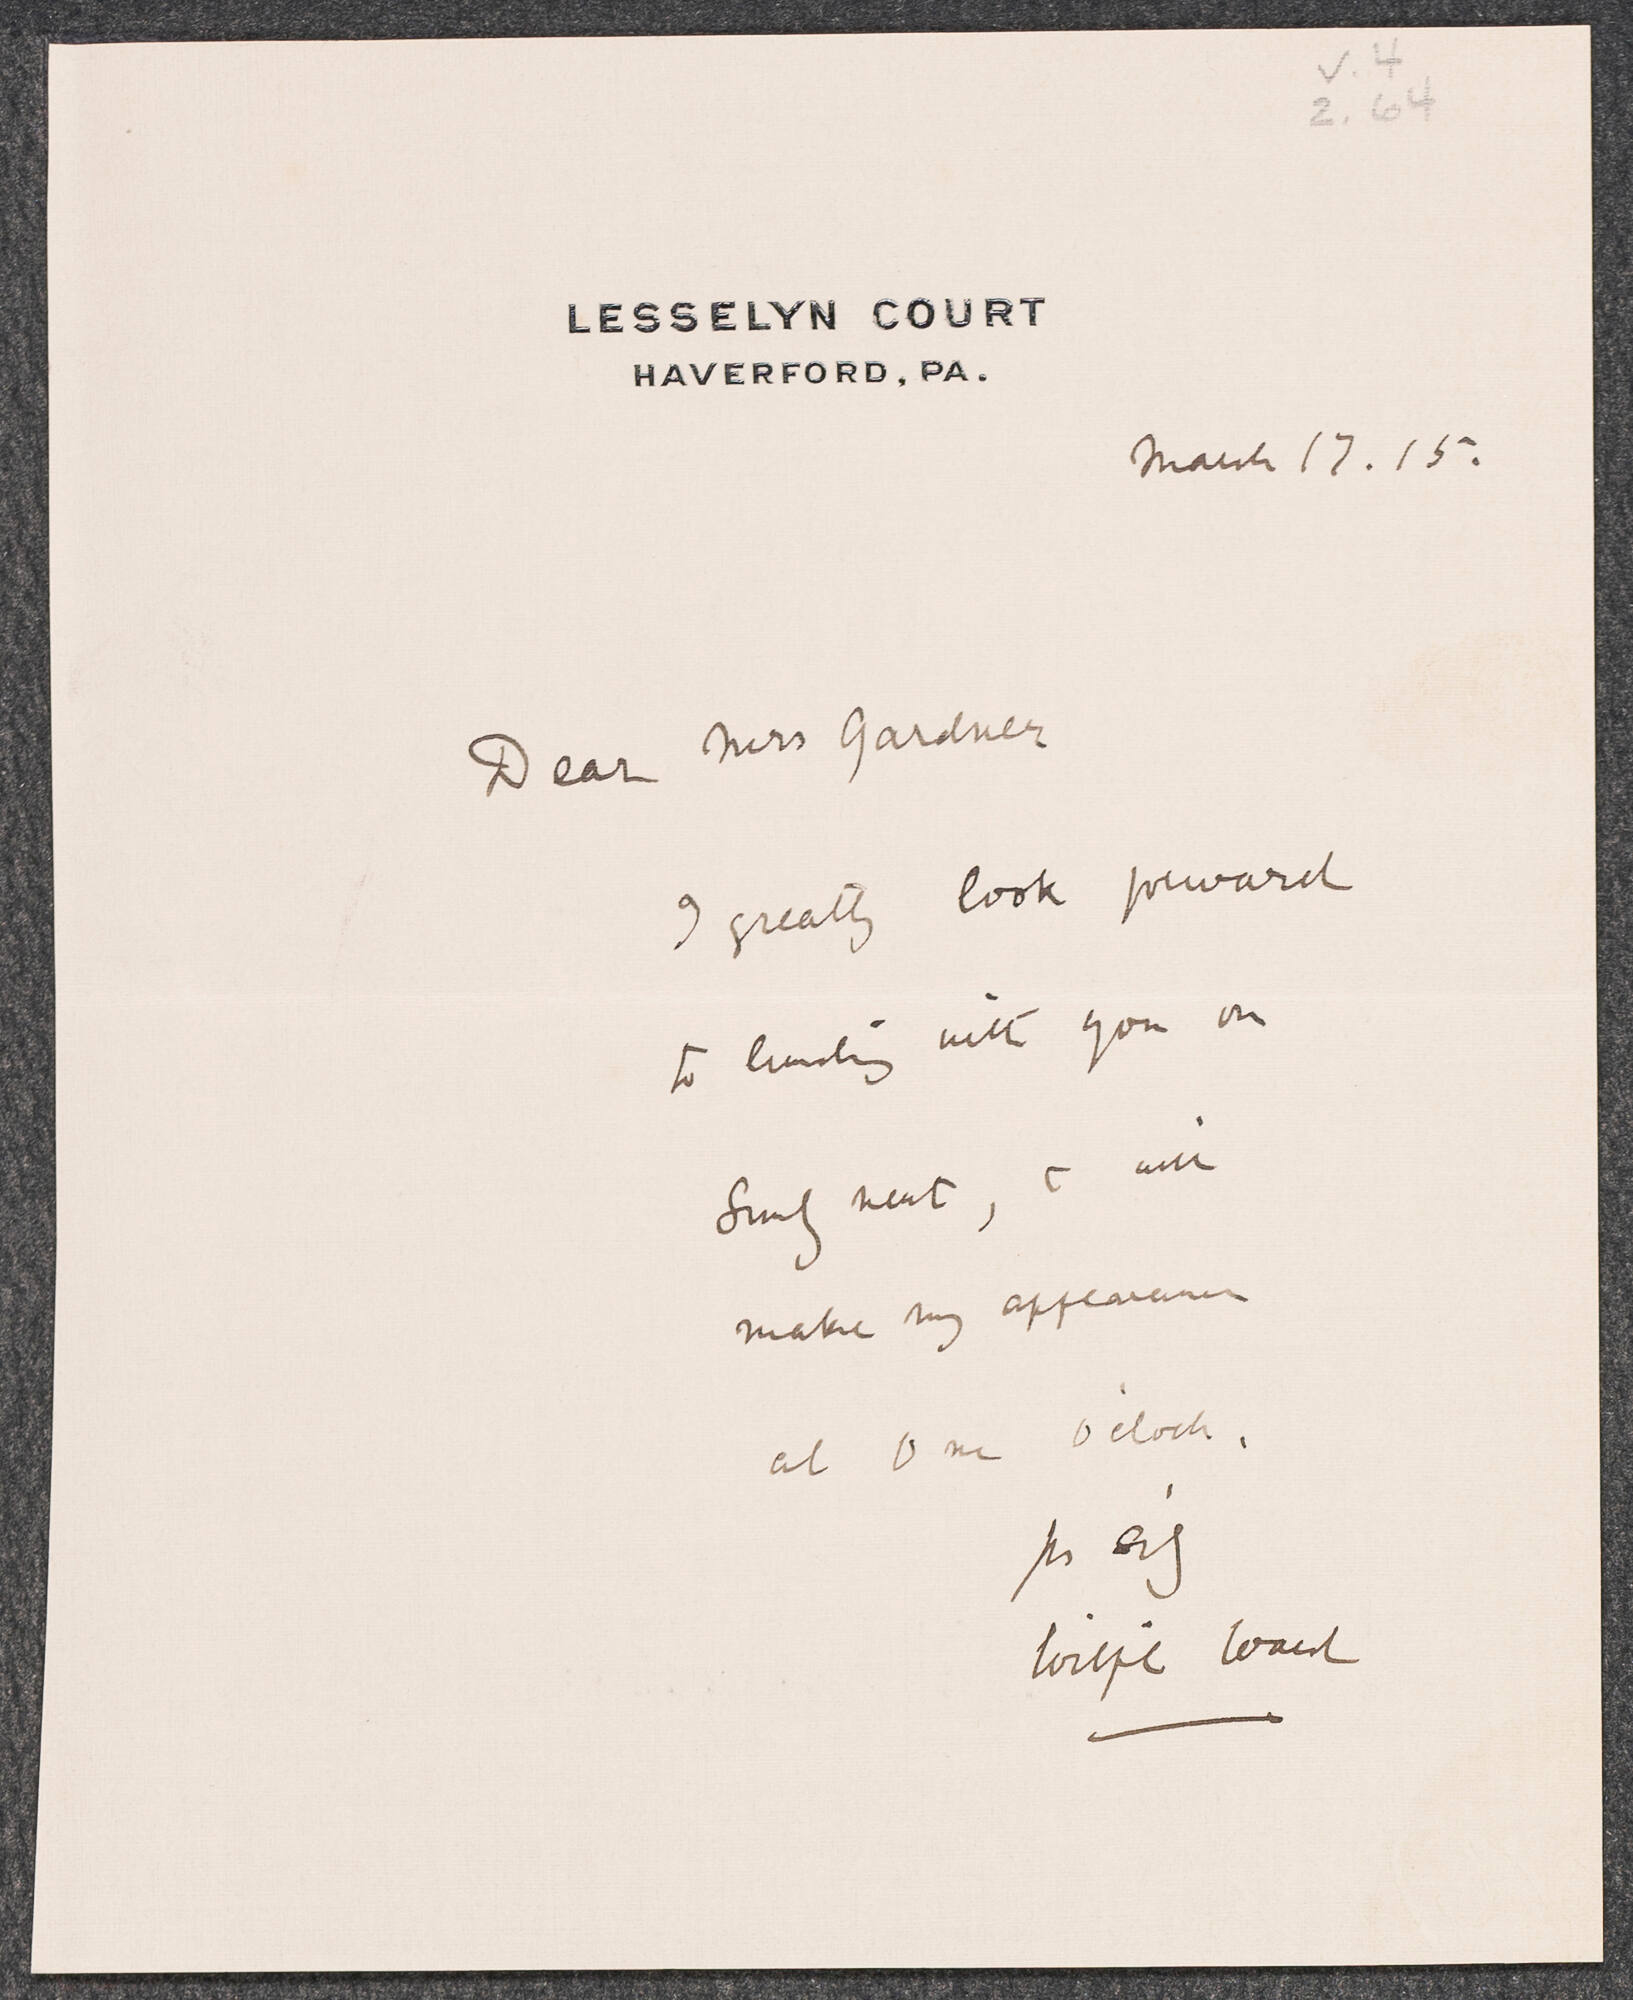 v. 4
2. 64
LESSELYN COURT
HAVERFORD, PA.
March 17. 15.
Dear Mrs Gardner
I greatly look forward
to lunching with you on
Sundy next, & will
make my appearance
at One o'clock.
Yrs